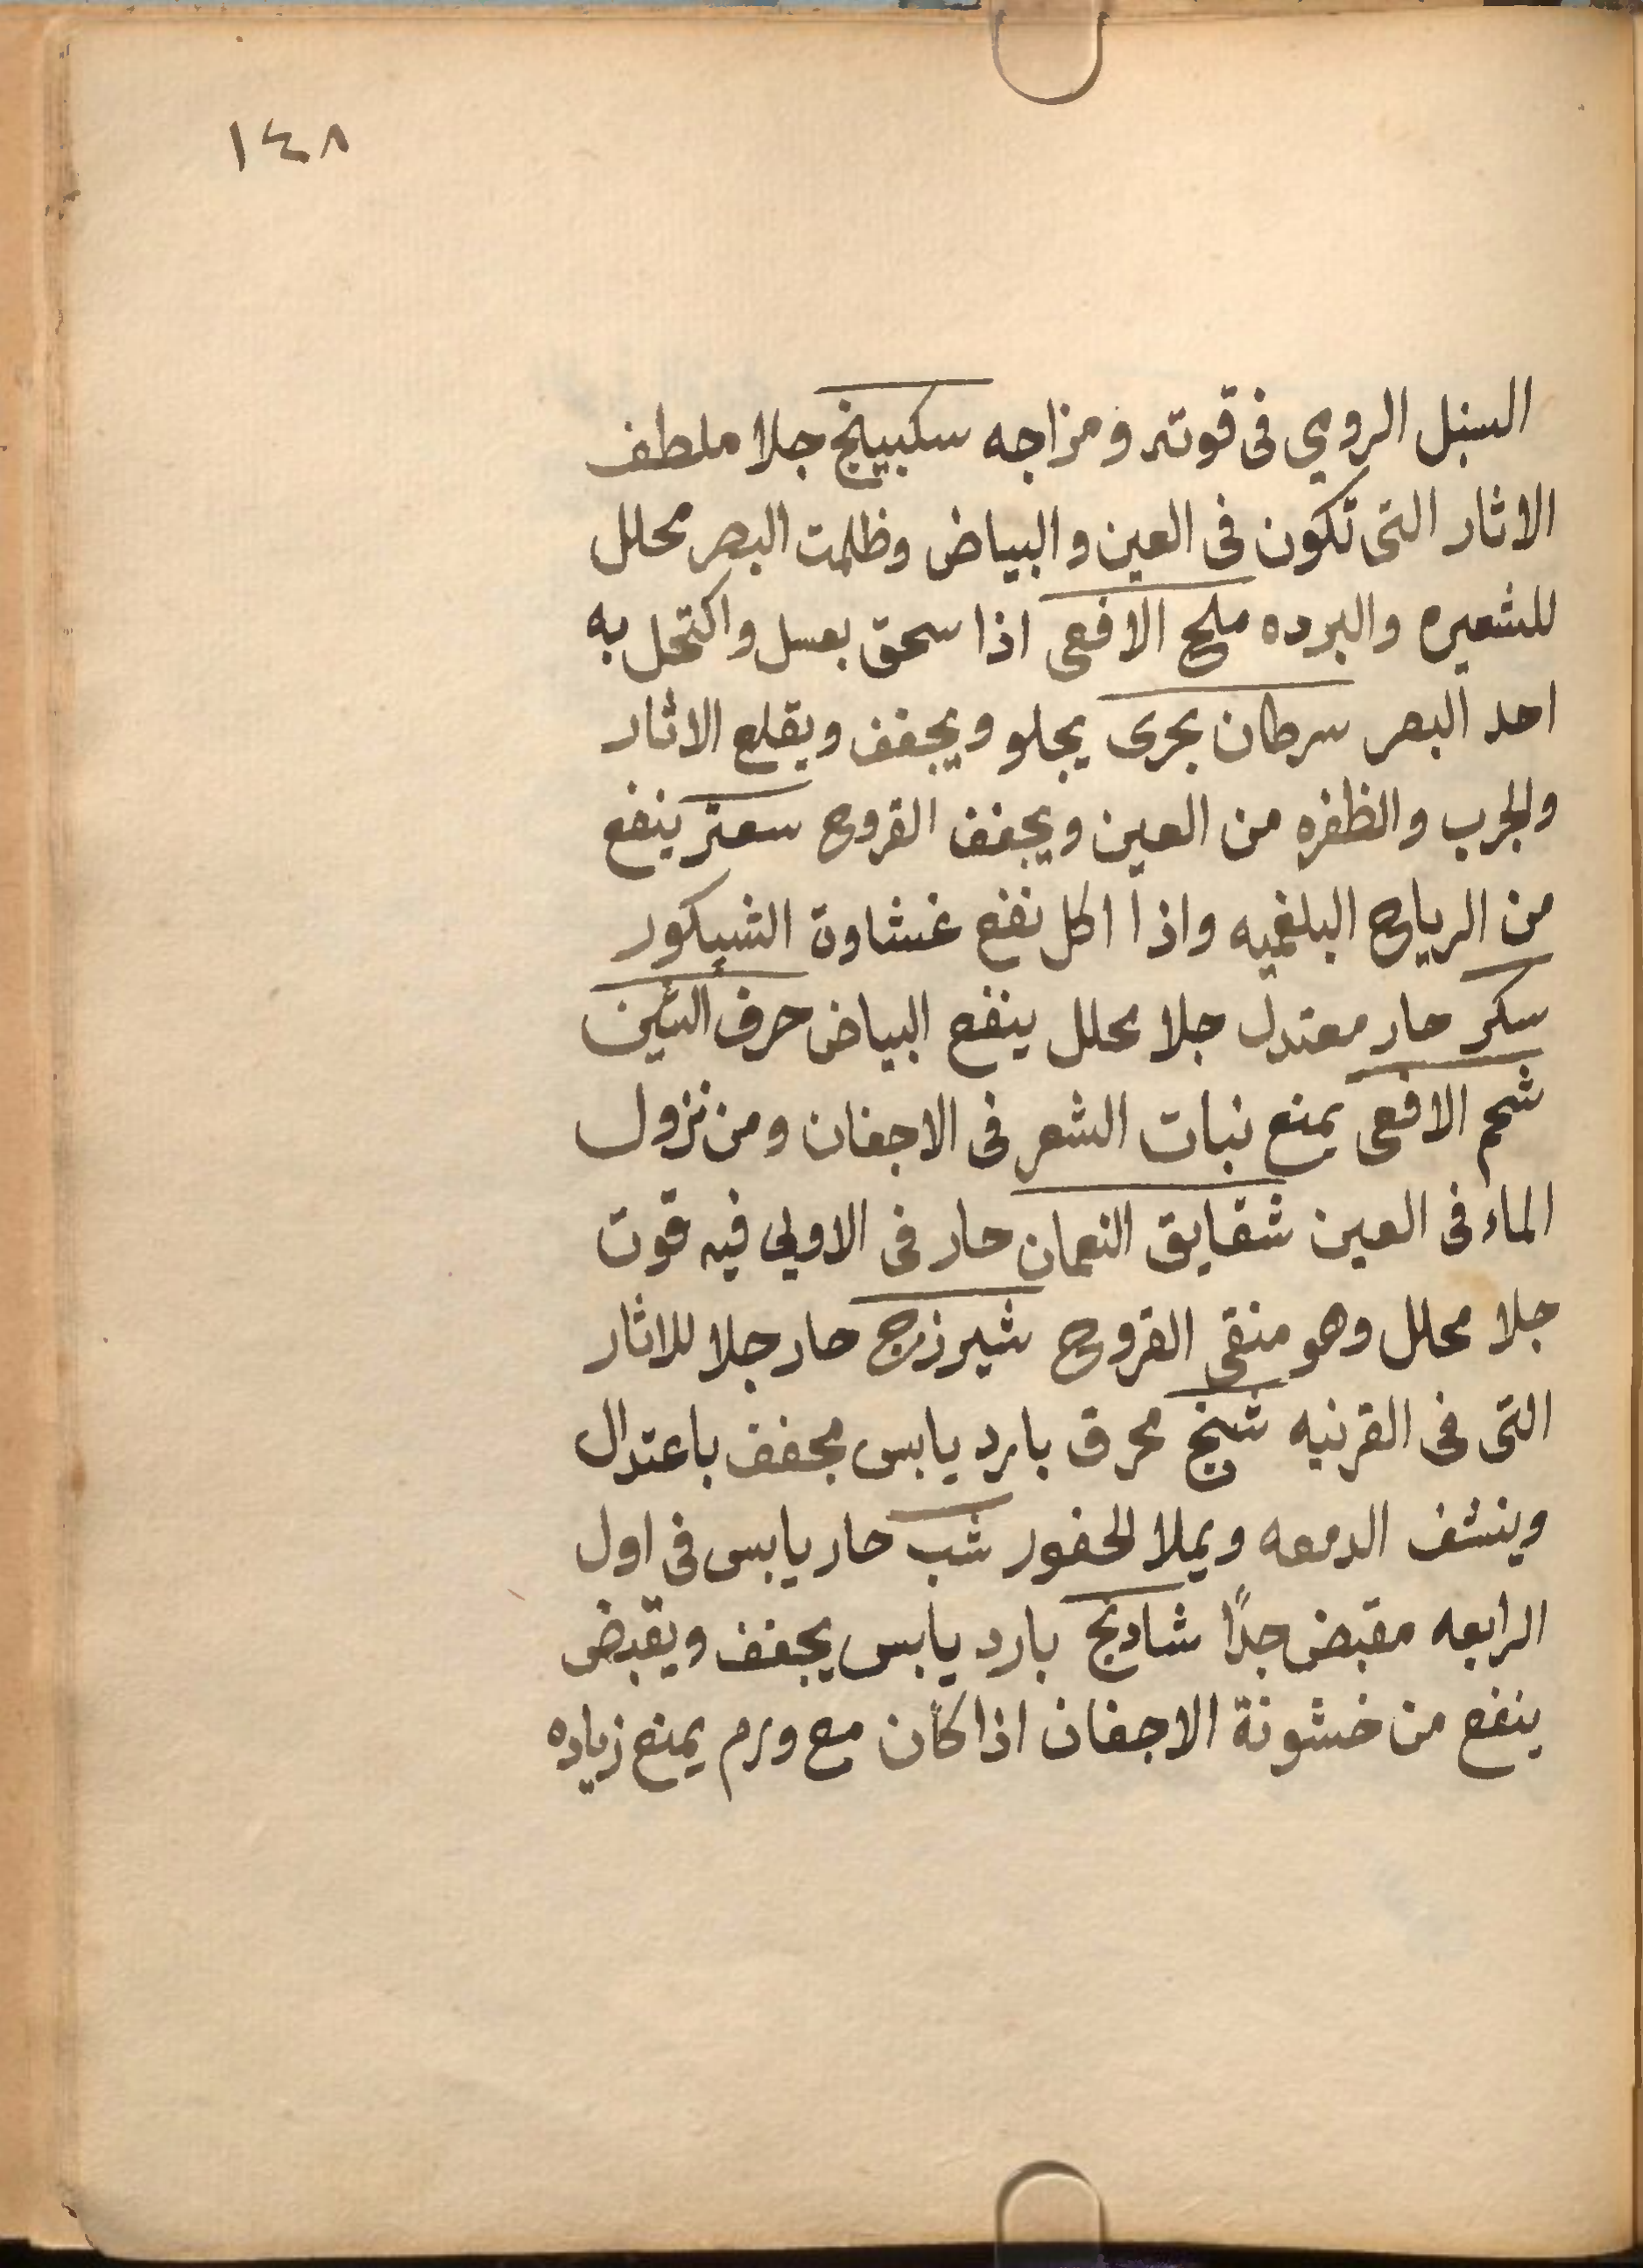 ١٤٨
السنبل الرومي فى قوته ومزاجه سكبينج جلا ملطف
الاثار التى تكون فى العين والبياض وظلمت البصر محلل
للشعيره والبرده ملح الافعى اذا سحق بعسل واكتحل به
احد البصر سرطان بحرى يجلو ويجفف ويقلع الاثار
والجرب والظفره من العين ويجفف القروح سعتر ينفع
من الرياح البلغميه واذا اكل نفع غشاوة الشبكور
سكر حار معتدل جلا محلل ينفع البياض حرف الشين
شحم الافعى يمنع نبات الشعر فى الاجفان ومن نزول
الماء فى العين شقايق النعمان حار فى الاولي فيه قوت
جلا محلل وهو منقى القروح شيرزج حار جلا للاثار
التى فى القرنيه شنج محرق بارد يابس مجفف باعتدال
وينشف الدمعه ويملا الحفور شب حار يابس فى اول
الرابعه مقبض جدًا شادنج بارد يابس يجفف ويقبض
ينفع من خشونة الاجفان اذا كان مع ورم يمنع زياده